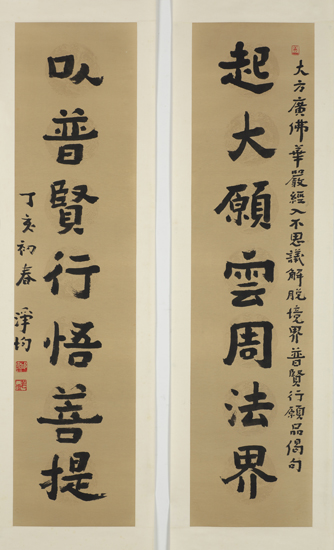 大方廣佛華嚴經入不思議解脫境界普賢行願品偈句
起大願雲周法界
以普賢行悟菩提
丁亥初春
澤均